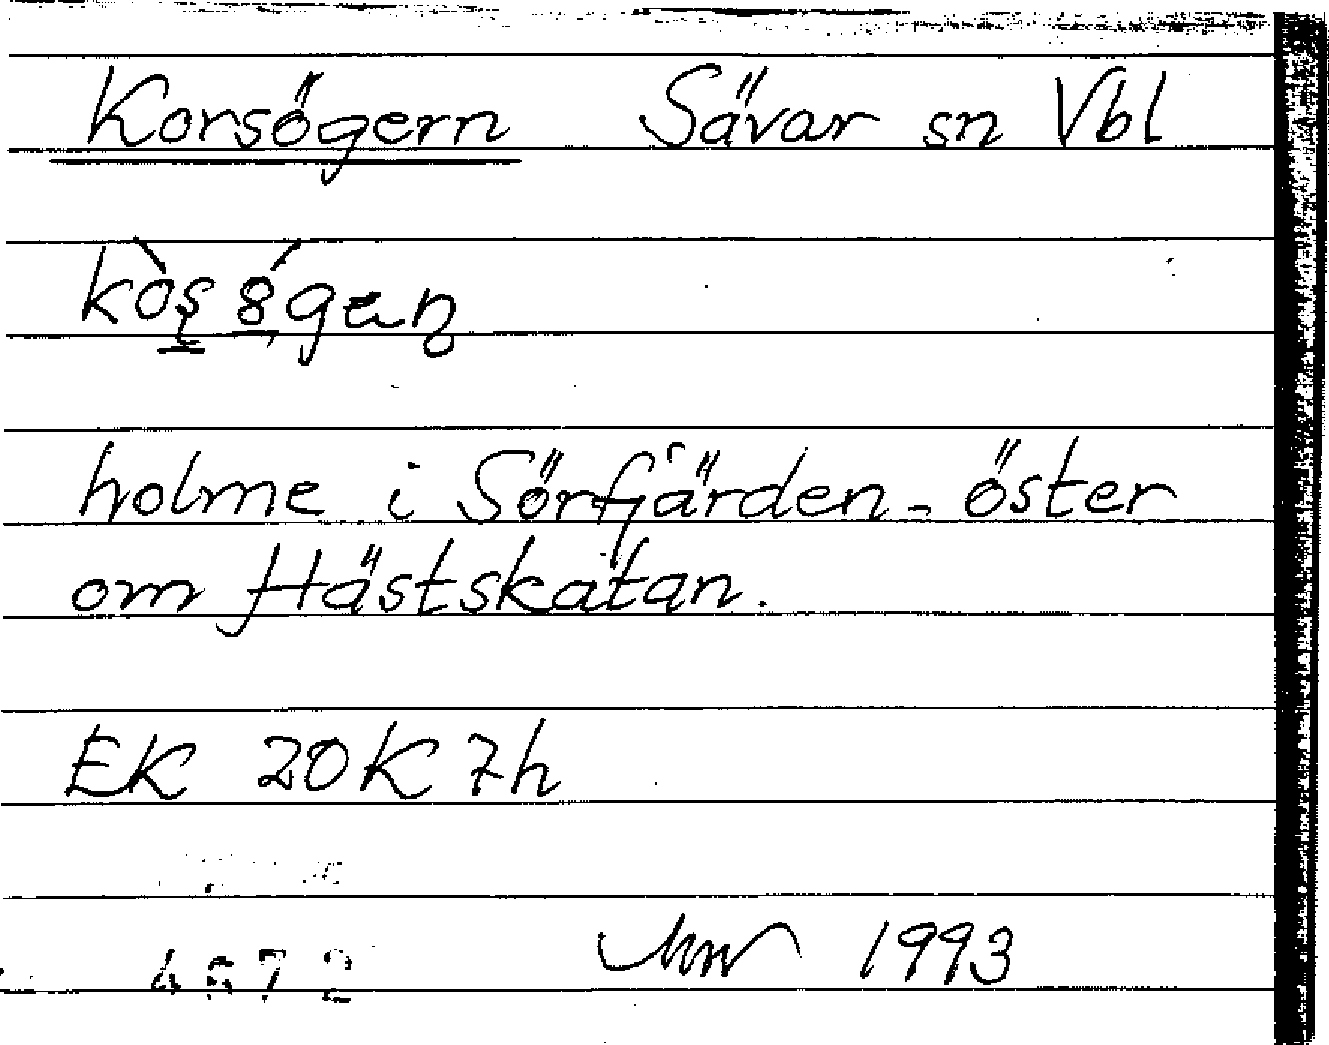 Korsögern Sävar sn Vbl
holme i Sörfjärden - öster
om Hästskatan.
EK 20K 7h
4572 1993